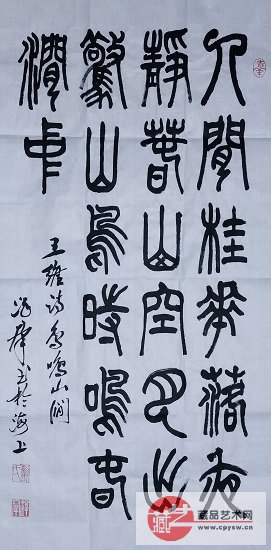 人閒桂華落夜
靜春山空月出
驚山鳥時鳴春
澗中
王維诗鳥鳴山澗
书於海上
藏品艺术网
www.cpysw.cn